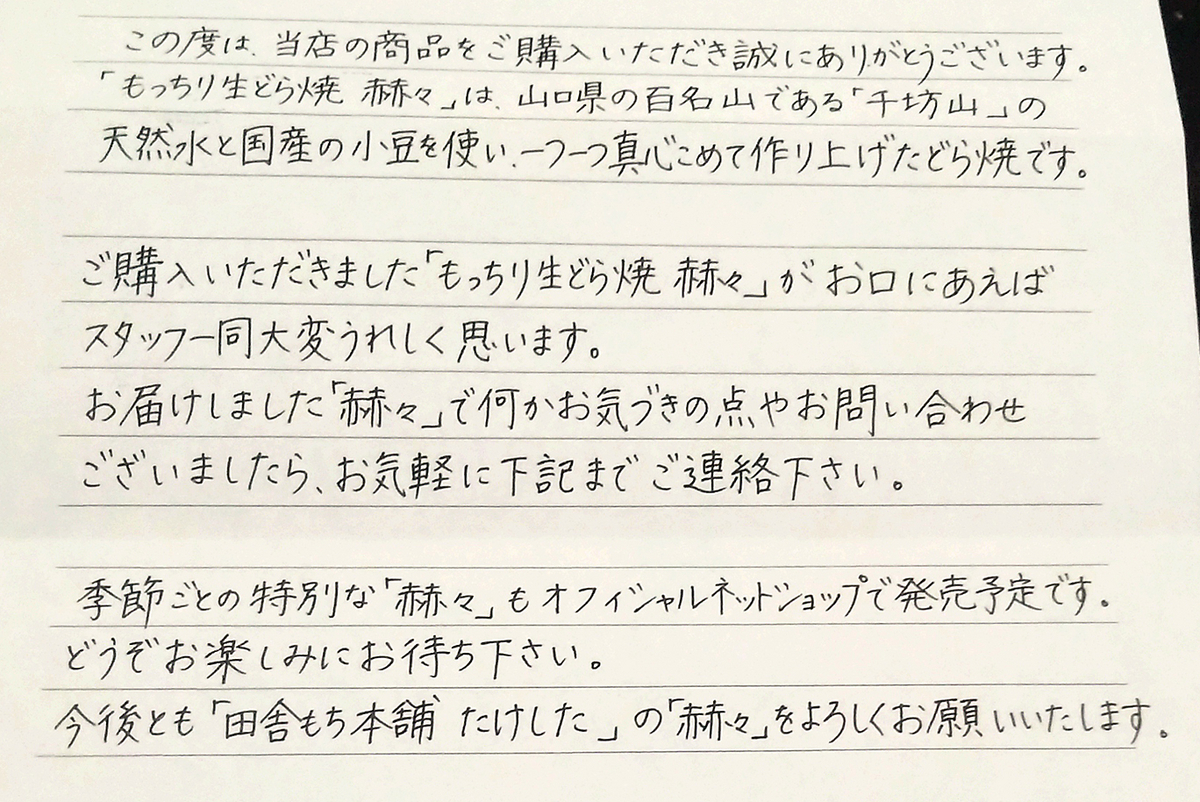 この度は、当店の商品をご購入いただき誠にありがとうございます。
「もっちり生どら焼 赫々」は、山口県の百名山である「千坊山」の
天然水と国産の小豆を使い、一つ一つ真心こめて作り上げたどら焼です。
ご購入いただきました「もっちり生どら焼 赫々」がお口にあえば
スタッフ一同大変うれしく思います。
お届けしました「赫々」で何かお気づきの点やお問い合わせ
ございましたら、お気軽に下記までご連絡下さい。
季節ごとの特別な「赫々」もオフィシャルネットショップで発売予定です。
どうぞお楽しみにお待ち下さい。
今後とも「田舎もち本舗 たけした」の「赫々」をよろしくお願いいたします。